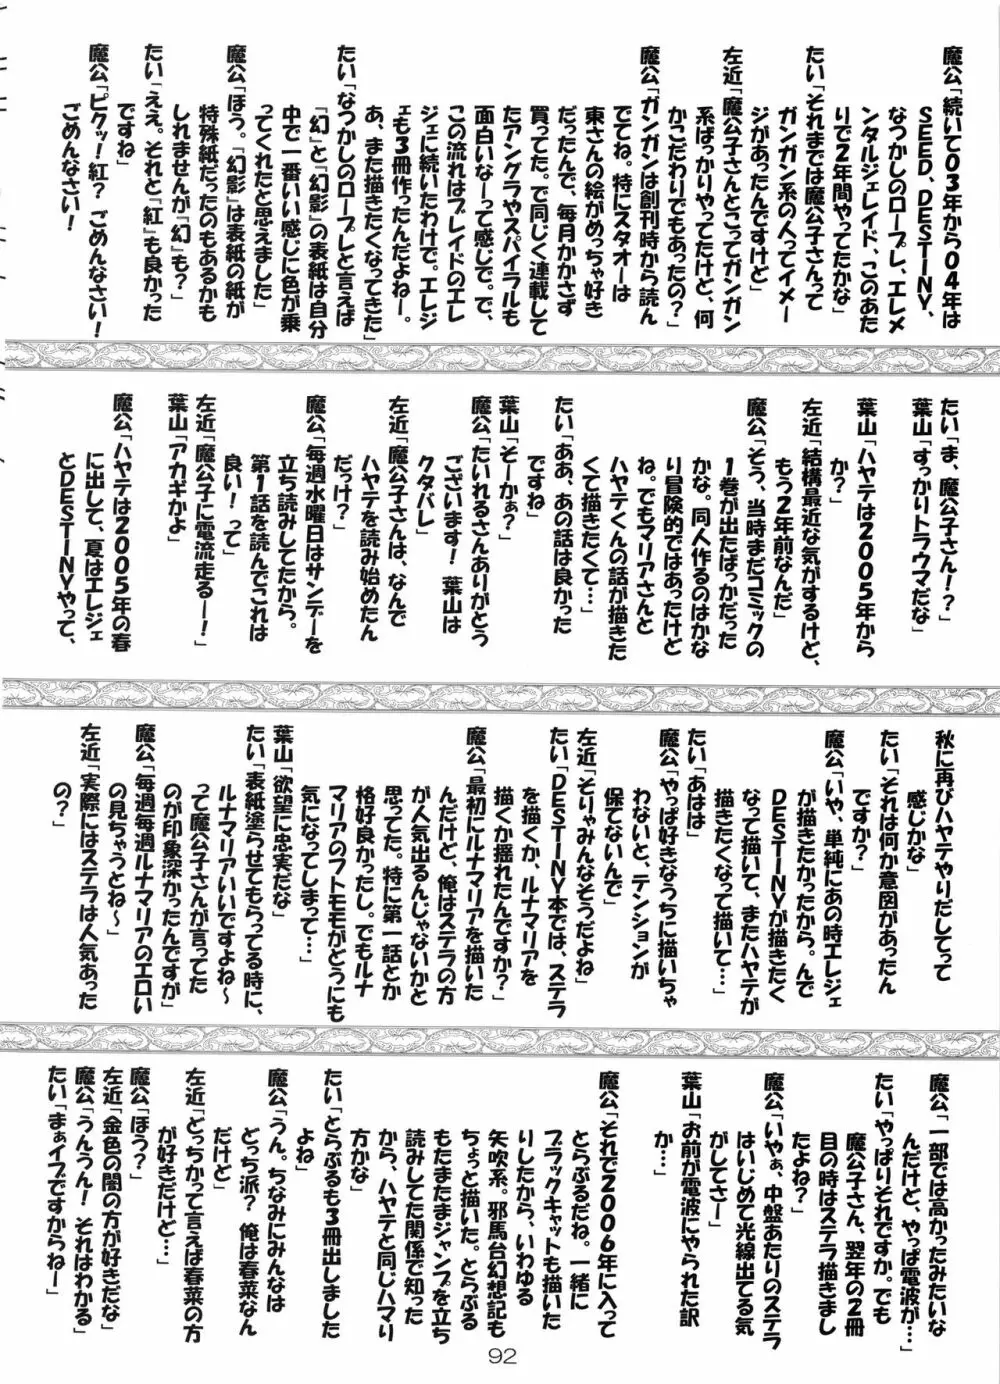 魔公「続いて03年から04年は
SEED、DESTINY、
なつかしのロープレ、エレメ
ンタルジェレイド、このあた
りで2年間やってたかな」
たい「それまでは魔公子さんって
ガンガン系の人ってイメー
ジがあったんですけど」
左近「魔公子さんとこってガンガン
系ばっかりやってたけど、何
かこだわりでもあったの？」
魔公「ガンガンは創刊時から読ん
でてね。特にスタオーは
東さんの絵がめっちゃ好き
だったんで、毎月かかさず
買ってた。で同じく連載して
たアングラやスパイラルも
面白いなーって感じで。で、
この流れはブレイドのエレ
ジェに続いたわけで。エレジ
ェも3冊作ったんだよねー。
あ、また描きたくなってきた」
たい「なつかしのロープレと言えば
『幻』と『幻影』の表紙は自分
中で一番いい感じに色が乗
ってくれたと思えました」
魔公「ほう。『幻影』は表紙の紙が
特殊紙だったのもあるかも
しれませんが『幻』も？」
たい「ええ。それと『紅』も良かった
ですね」
魔公「ピクッ！紅？ごめんなさい！
ごめんなさい！
たい「ま、魔公子さん！？」
葉山「すっかりトラウマだな」
葉山「ハヤテは2005年から
か？」
左近「結構最近な気がするけど、
もう2年前なんだ」
魔公「そう、当時まだコミックの
1巻が出たばっかだった
かな。同人作るのはかな
り冒険的ではあったけど
ね。でもマリアさんと
ハヤテくんの話が描きた
くて描きたくて…」
たい「ああ、あの話は良かった
ですね」
葉山「そーかぁ？」
魔公「たいれるさんありがとう
ございます！　葉山は
クタバレ」
左近「魔公子さんは、なんで
ハヤテを読み始めたん
だっけ？」
魔公「毎週水曜日はサンデーを
立ち読みしてたから。
第1話を読んでこれは
良い！って」
左近「魔公子に電流走るー！」
葉山「アカギかよ」
魔公「ハヤテは2005年の春
に出して、夏はエレジェ
とDESTINYやって、
秋に再びハヤテやりだしてって
感じかな」
たい「それは何か意図があったん
ですか？」
魔公「いや、単純にあの時エレジェ
が描きたかったから。んで
DESTINYが描きたく
なって描いて、またハヤテが
描きたくなって描いて…」
たい「あはは」
魔公「やっぱ好きなうちに描いちゃ
わないと、テンションが
保てないんで」
左近「そりゃみんなそうだよね」
たい「DESTINY本では、ステラ
を描くか、ルナマリアを
描くか揺れたんですか？」
魔公「最初にルナマリアを描いた
んだけど、俺はステラの方
が人気出るんじゃないかと
思ってた。特に第一話とか
格好良かったし。でもルナ
マリアのフトモモがとうにも
気になってしまって…」
葉山「欲望に忠実だな」
たい「表紙塗らせてもらってる時に、
ルナマリアいいですよね〜
って魔公子さんが言ってた
のが印象深かったんですが」
魔公「毎週毎週ルナマリアのエロい
の見ちゃうとね〜」
左近「実際にはステラは人気あった
の？」
魔公「一部では高かったみたいな
んだけど、やっぱ電波が…」
たい「やっぱりそれですか。でも
魔公子さん、翌年の2冊
目の時はステラ描きまし
たよね？」
魔公「いやぁ、中盤あたりのステラ
はいじめて光線出てる気
がしてさー」
葉山「お前が電波にやられた訳
か…」
魔公「それで2006年に入って
とらぶるだね。一緒に
ブラックキャットも描いた
りしたから、いわゆる
矢吹系。邪馬台幻想記も
ちょっと描いた。とらぶる
もたまたまジャンプを立ち
読みしてた関係で知った
から、ハヤテと同じハマり
方かな」
たい「とらぶるも3冊出しました
よね」
魔公「うん。ちなみにみんなは
どっち派？俺は春菜なん
だけど」
左近「どっちかって言えば春菜の方
が好きだけど…」
魔公「ほう？」
左近「金色の闇の方が好きだな」
魔公「うんうん！それはわかる」
たい「まぁイブですからねー」
92